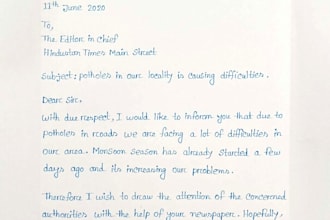 11th June 2050
To,
The Editor in Chief
Hindustan Times Main Street
Subject: potholes in our locality is causing difficulties.
Dear Sir,
With due respect, I would like to inform you that due to
potholes in roads we are facing a lot of difficulties in
our area. Monsoon season has already started a few
days ago and its increasing our problems.
Therefore I wish to draw the attention of the concerned
authorities with the help of your newspaper. Hopefully,